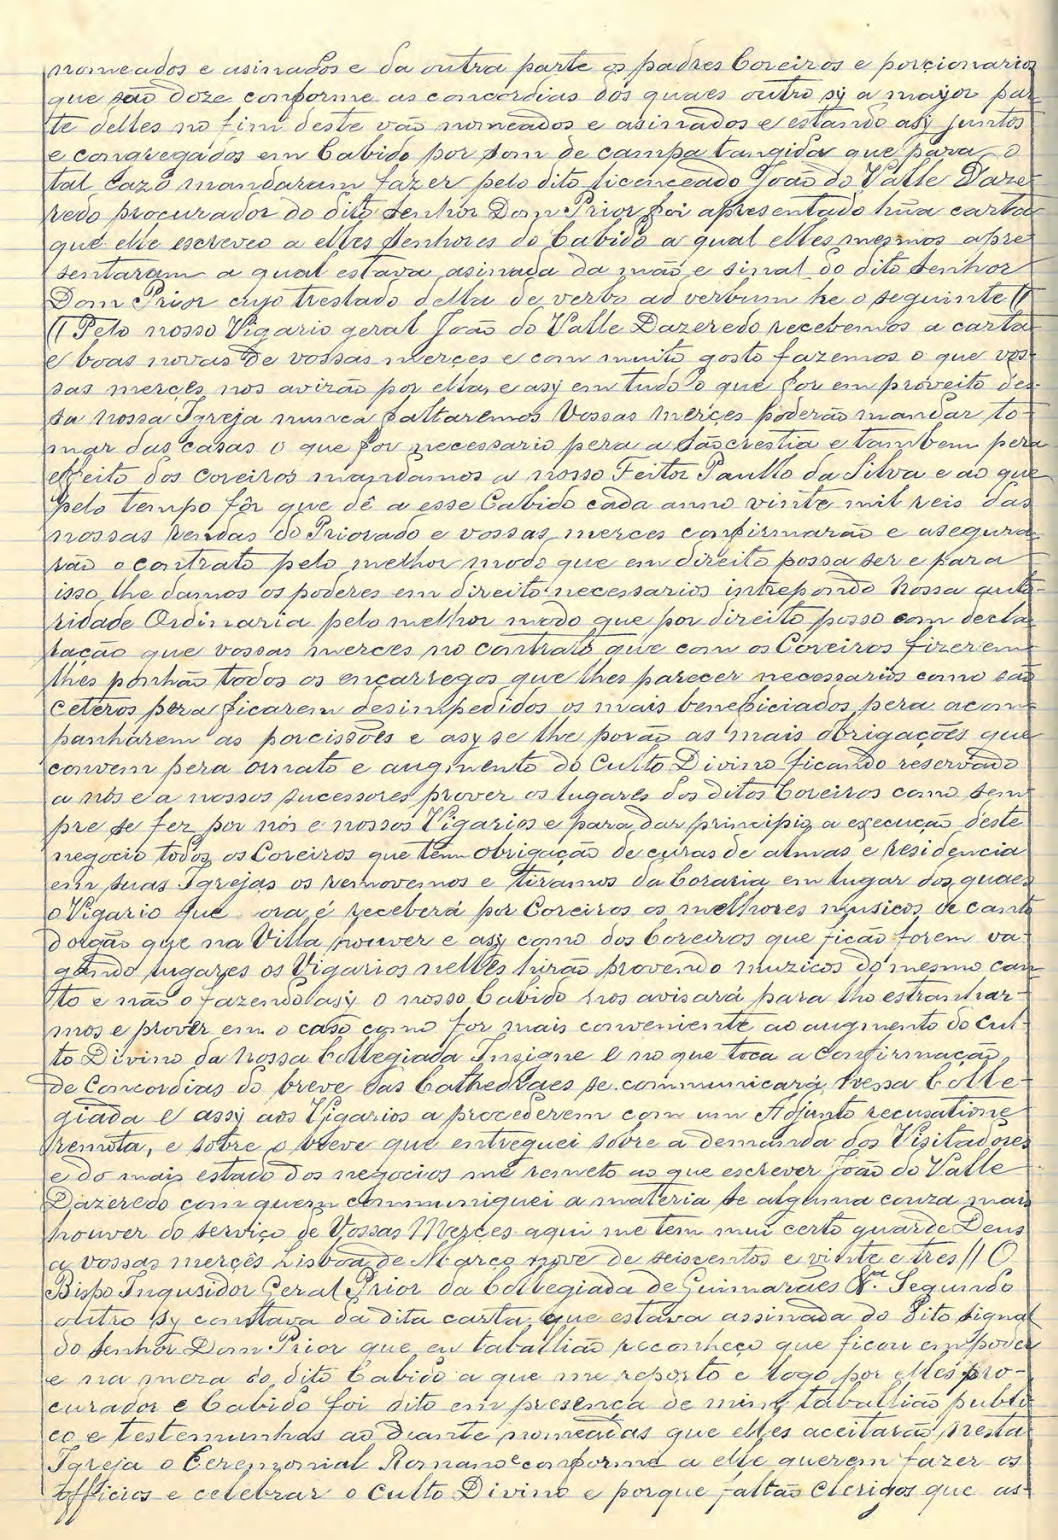 nomeados e asinados e da outra parte os padres Coreiros e porcionarios
que são doze conforme as concordias dos quaes outro sy a mayor par-
te delles no fim deste vão nomeados e asinados e estando asy juntos
e congregados em Cabido por som de campa tangida que para o
tal cazo mandaram fazer pelo dito licenceado João do Valle Daze-
redo procurador do dito Senhor Dom Prior foi apresentado hũa carta
que elle escreveo a elles Senhores do Cabido a qual elles mesmos apre-
sentaram a qual estava asinada da mão e sinal do dito Senhor
Dom Prior cujo treslado della de verbo ad verbum he o seguinte //
// Pelo nosso Vigario geral João do Valle Dazeredo recebemos a carta
e boas novas de vossas merçes e com muito gosto fazemos o que vos-
sas merçes nos avizão por ella, e asy em tudo o que for em proveito des-
sa nossa Igreja nunca faltaremos Vossas Merçes poderão mandar to-
mar das casas o que for necessario pera a Sãocrestia e tambem pera
effeito dos Coreiros mandamos a nosso Feitor Paullo da Silva e ao que
pelo tempo fôr que dê a esse Cabido cada anno vinte mil reis das
nossas Rendas do Priorado e vossas merces confirmarão e asegura-
rão o contrato pelo melhor modo que em direito possa ser e para
isso lhe damos os poderes em direito necessarios intrepondo Nossa auto-
ridade Ordinaria pelo melhor modo que por direito posso com decla-
ração que vossas merces no contrato que com os Coreiros fizerem
lhes ponhão todos os encarregos que lhes parecer necessarios como são
ceteros pera ficarem desimpedidos os mais beneficiados pera acom-
panharem as porcissões e asy se lhe porão as mais obrigações que
convem pera ornato e augmento do Culto Divino ficando reservado
a nós e a nossos sucessores prover os lugares dos ditos Coreiros como sem-
pre se fez por nós e nossos Vigarios e para dar principio a execução deste
negocio todos os Coreiros que têm obrigação de curas de almas e residencia
em suas Igrejas os removemos e tiramos da Coraria em lugar dos quaes
o Vigario que ora é receberá por Coreiros os melhores musicos de canto
dorgão que na Villa houver e asy como dos Coreiros que ficão forem va-
gando lugares os Vigarios nelles hirão provendo muzicos do mesmo can-
to e não o fazendo asy o nosso Cabido nos avisará para lho estranhar-
mos e prover em o caso como for mais conveniente ao augmento do Cul-
to Divino da Nossa Collegiada Insigne E no que toca a confirmação
de Concordias do breve das Cathedraes se communicará nessa Colle-
giada E assy aos Vigarios a procederem com um Adjunto recusatione
remota, e sobre o breve que entreguei sobre a demanda dos Visitadores
e do mais estado dos negocios me remeto ao que escrever João do Valle
Dazeredo com quem communiquei a materia se alguma couza mais
houver do serviço de Vossas Merçes aqui me tem mui certo guarde Deus
a vossas merçês Lisboa de Março nove de seiscentos e vinte e tres // O
Bispo Inquisidor Geral Prior da Collegiada de Guimarães &.ª Segundo
outro sy constava da dita carta que estava assinada do dito signal
do Senhor Dom Prior que eu taballião reconheço que ficou em poder
e na meza do dito Cabido a que me reporto e logo por elles pro-
curador e Cabido foi dito em presença de mim taballião publi-
co e testemunhas ao diante nomeadas que elles aceitarão nesta
Igreja o Ceremonial Romano e conforme a elle querem fazer os
officios e celebrar o Culto Divino e porque faltão Clerigos que as-